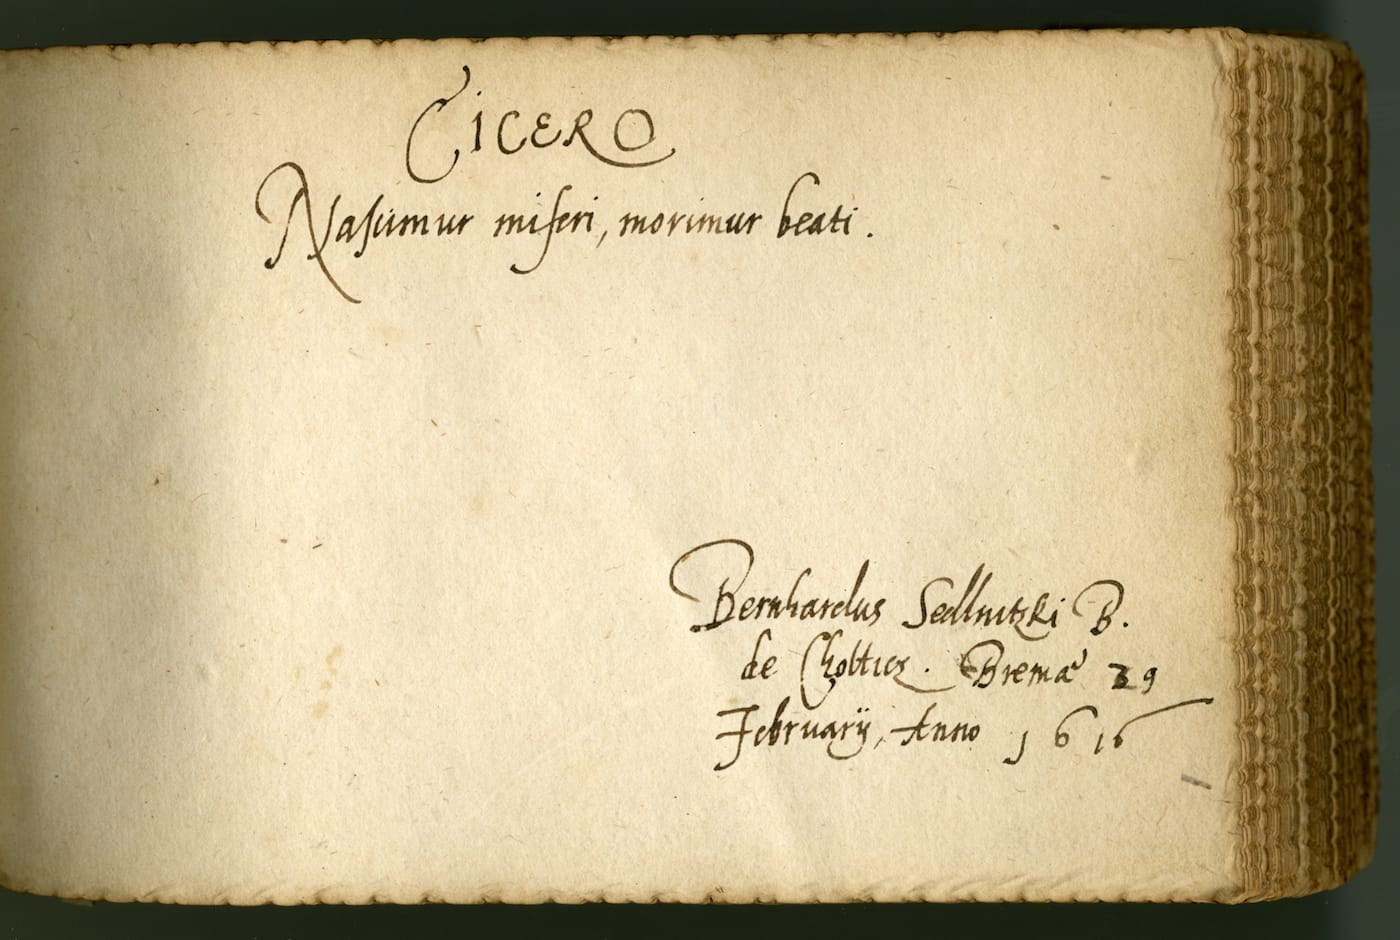 CICERO
Nascimur miseri, morimur beati.
Bernhardus Sedlnitzki B.
de Cholticz. Bremæ 29
Februarij, Anno 1616